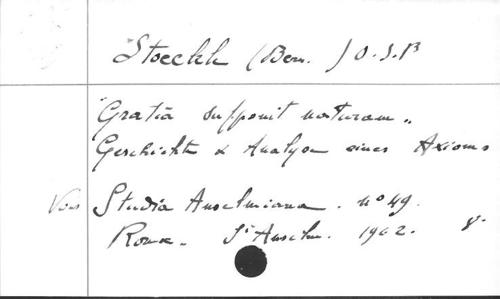 Stoeckle (Bern. ) O.S.B
"Gratia supponit naturam"
Geschichte & Analyse eines Axioms
Voir Studia Anselmiana. nº 49.
Roma. St Anselm. 1962. 8.